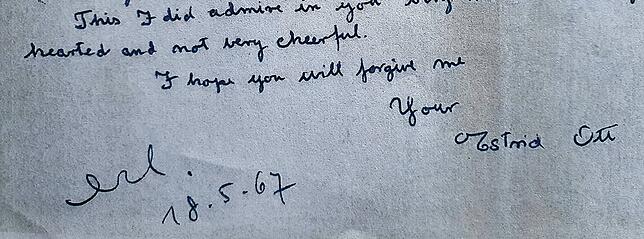 This I did admire in you
hearted and not very cheerful.
I hope you will forgive me
Your
Astrid Ott
erl.
18.5.67